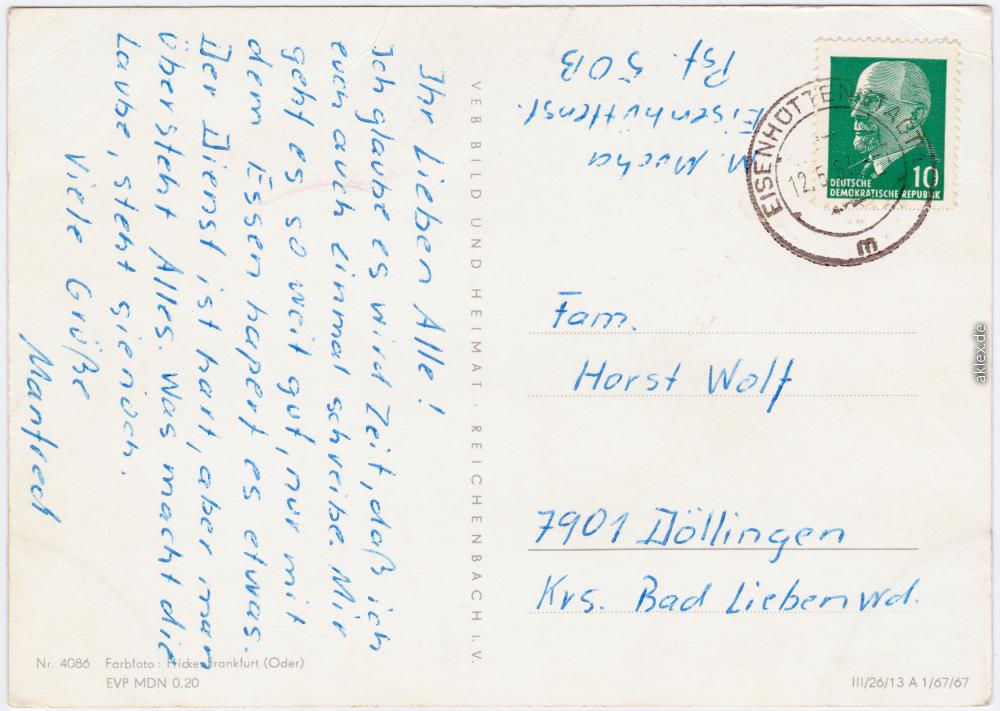 Ihr Lieben Alle!
Ich glaube es wird Zeit, daß ich
euch auch einmal schreibe. Mir
geht es so weit gut, nur mit
dem Essen hapert es etwas.
Der Dienst ist hart, aber man
übersteht Alles. Was macht die
Laube, steht sie noch.
Viele Grüße
Manfred
VEB BILD UND HEIMAT · REICHENBACH I. V.
M. Mucha
Eisenhüttenst.
Psf. 50B
EISENHÜTTENSTADT
12.5.
m
10
DEUTSCHE
DEMOKRATISCHE REPUBLIK
Fam.
Horst Wolf
7901 Döllingen
Krs. Bad Liebenwd.
Nr. 4086 Farbfoto: Fricke, Frankfurt (Oder)
EVP MDN 0,20
III/26/13 A 1/67/67
aklex.de